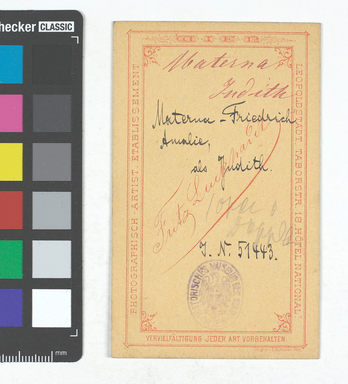 checker CLASSIC
WIEN
Materna
Judith
Materna-Friedrich
Amalie,
als Judith.
Fritz Luckhardt
J. N. 51443.
PHOTOGRAPHISCH ARTIST. ETABLISSEMENT
LEOPOLDSTADT, TABORSTR. 18 HOTEL NATIONAL.
VERVIELFÄLTIGUNG JEDER ART VORBEHALTEN.
mm